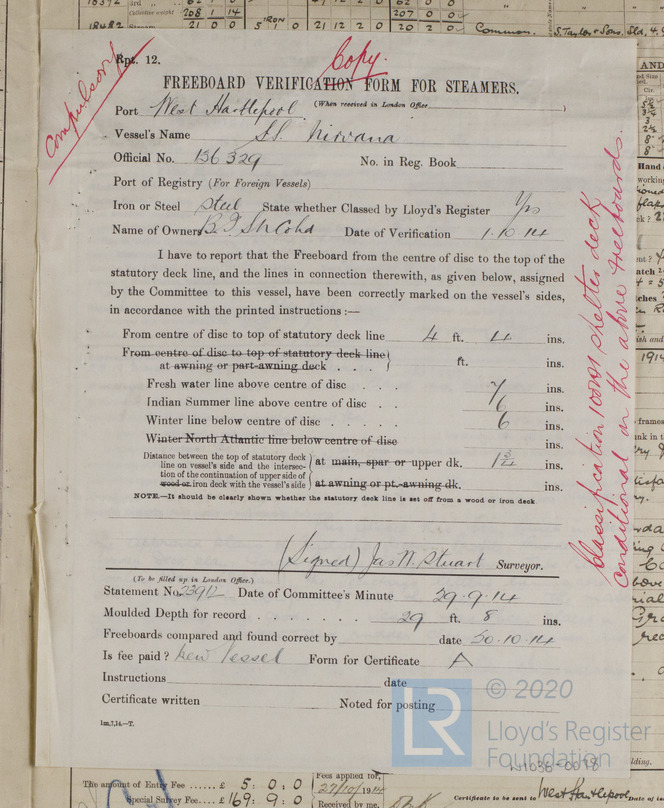 Compulsory
Rpt. 12.
Copy.
FREEBOARD VERIFICATION FORM FOR STEAMERS.
Port West Hartlepool (When received in London Office )
Vessel's Name S.S. Nirvana
Official No. 136329 No. in Reg. Book
Port of Registry (For Foreign Vessels)
Iron or Steel Steel State whether Classed by Lloyd's Register Yes
Name of Owners B.I. S.N. Co Ld Date of Verification 1.10.14
I have to report that the Freeboard from the centre of disc to the top of the
statutory deck line, and the lines in connection therewith, as given below, assigned
by the Committee to this vessel, have been correctly marked on the vessel's sides,
in accordance with the printed instructions :—
From centre of disc to top of statutory deck line 4 ft. 4 ins.
From centre of disc to top of statutory deck line
at awning or part-awning deck . . . ft. ins.
Fresh water line above centre of disc . . . 7 ins.
Indian Summer line above centre of disc . . 6 ins.
Winter line below centre of disc . . . . 6 ins.
Winter North Atlantic line below centre of disc ins.
Distance between the top of statutory deck
line on vessel's side and the intersec-
tion of the continuation of upper side of
wood or iron deck with the vessel's side
at main, spar or upper dk. 1 3/4 ins.
at awning or pt.-awning dk. ins.
NOTE.—It should be clearly shown whether the statutory deck line is set off from a wood or iron deck
(Signed) Jas W. Stuart Surveyor.
(To be filled up in London Office.)
Statement No. 23912 Date of Committee's Minute 29.9.14
Moulded Depth for record . . . . . . . 29 ft. 8 ins.
Freeboards compared and found correct by date 30.10.14
Is fee paid? New Vessel Form for Certificate A
Instructions date
Certificate written Noted for posting
1m,7,14.—T.
Classification 100A1 shelter deck
conditional on the above freeboards.
© 2020
Lloyd's Register
Foundation
W1036-0078
The amount of Entry Fee ...... £ 5 : 0 : 0
Special Survey Fee.... £ 169 : 9 : 0
Fees applied for,
27/10/1914
Received by me,
Certificate to be sent to West Hartlepool
Date of